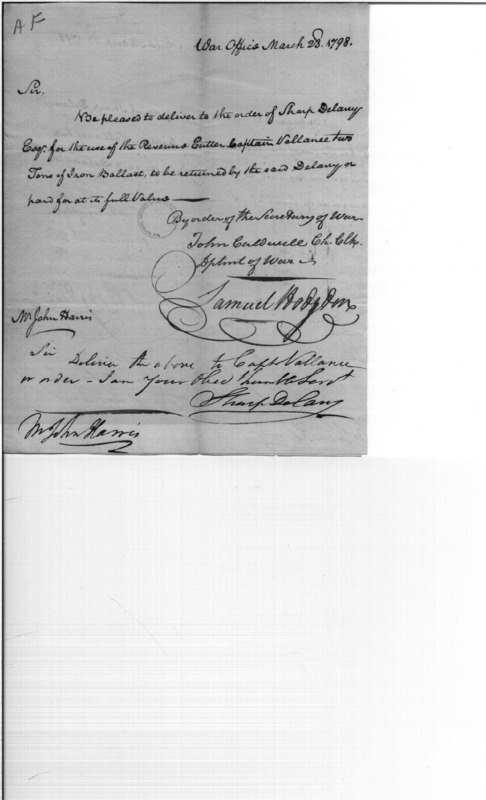 A F
War Office March 28. 1798.
Sir,
Be pleased to deliver to the order of Sharp Delany
Esqr. for the use of the Revenue Cutter Captain Vallance two
Tons of Iron Ballast, to be returned by the said Delany or
paid for at its full Value
By order of the Secretary of War
John Caldwell Ch. Clk.
Dptmt of War
Samuel Hodgdon
Mr John Harris
Sir Deliver the above to Capt Vallance
or order - I am your Obed humble Servt
Sharp Delany
Mr John Harris